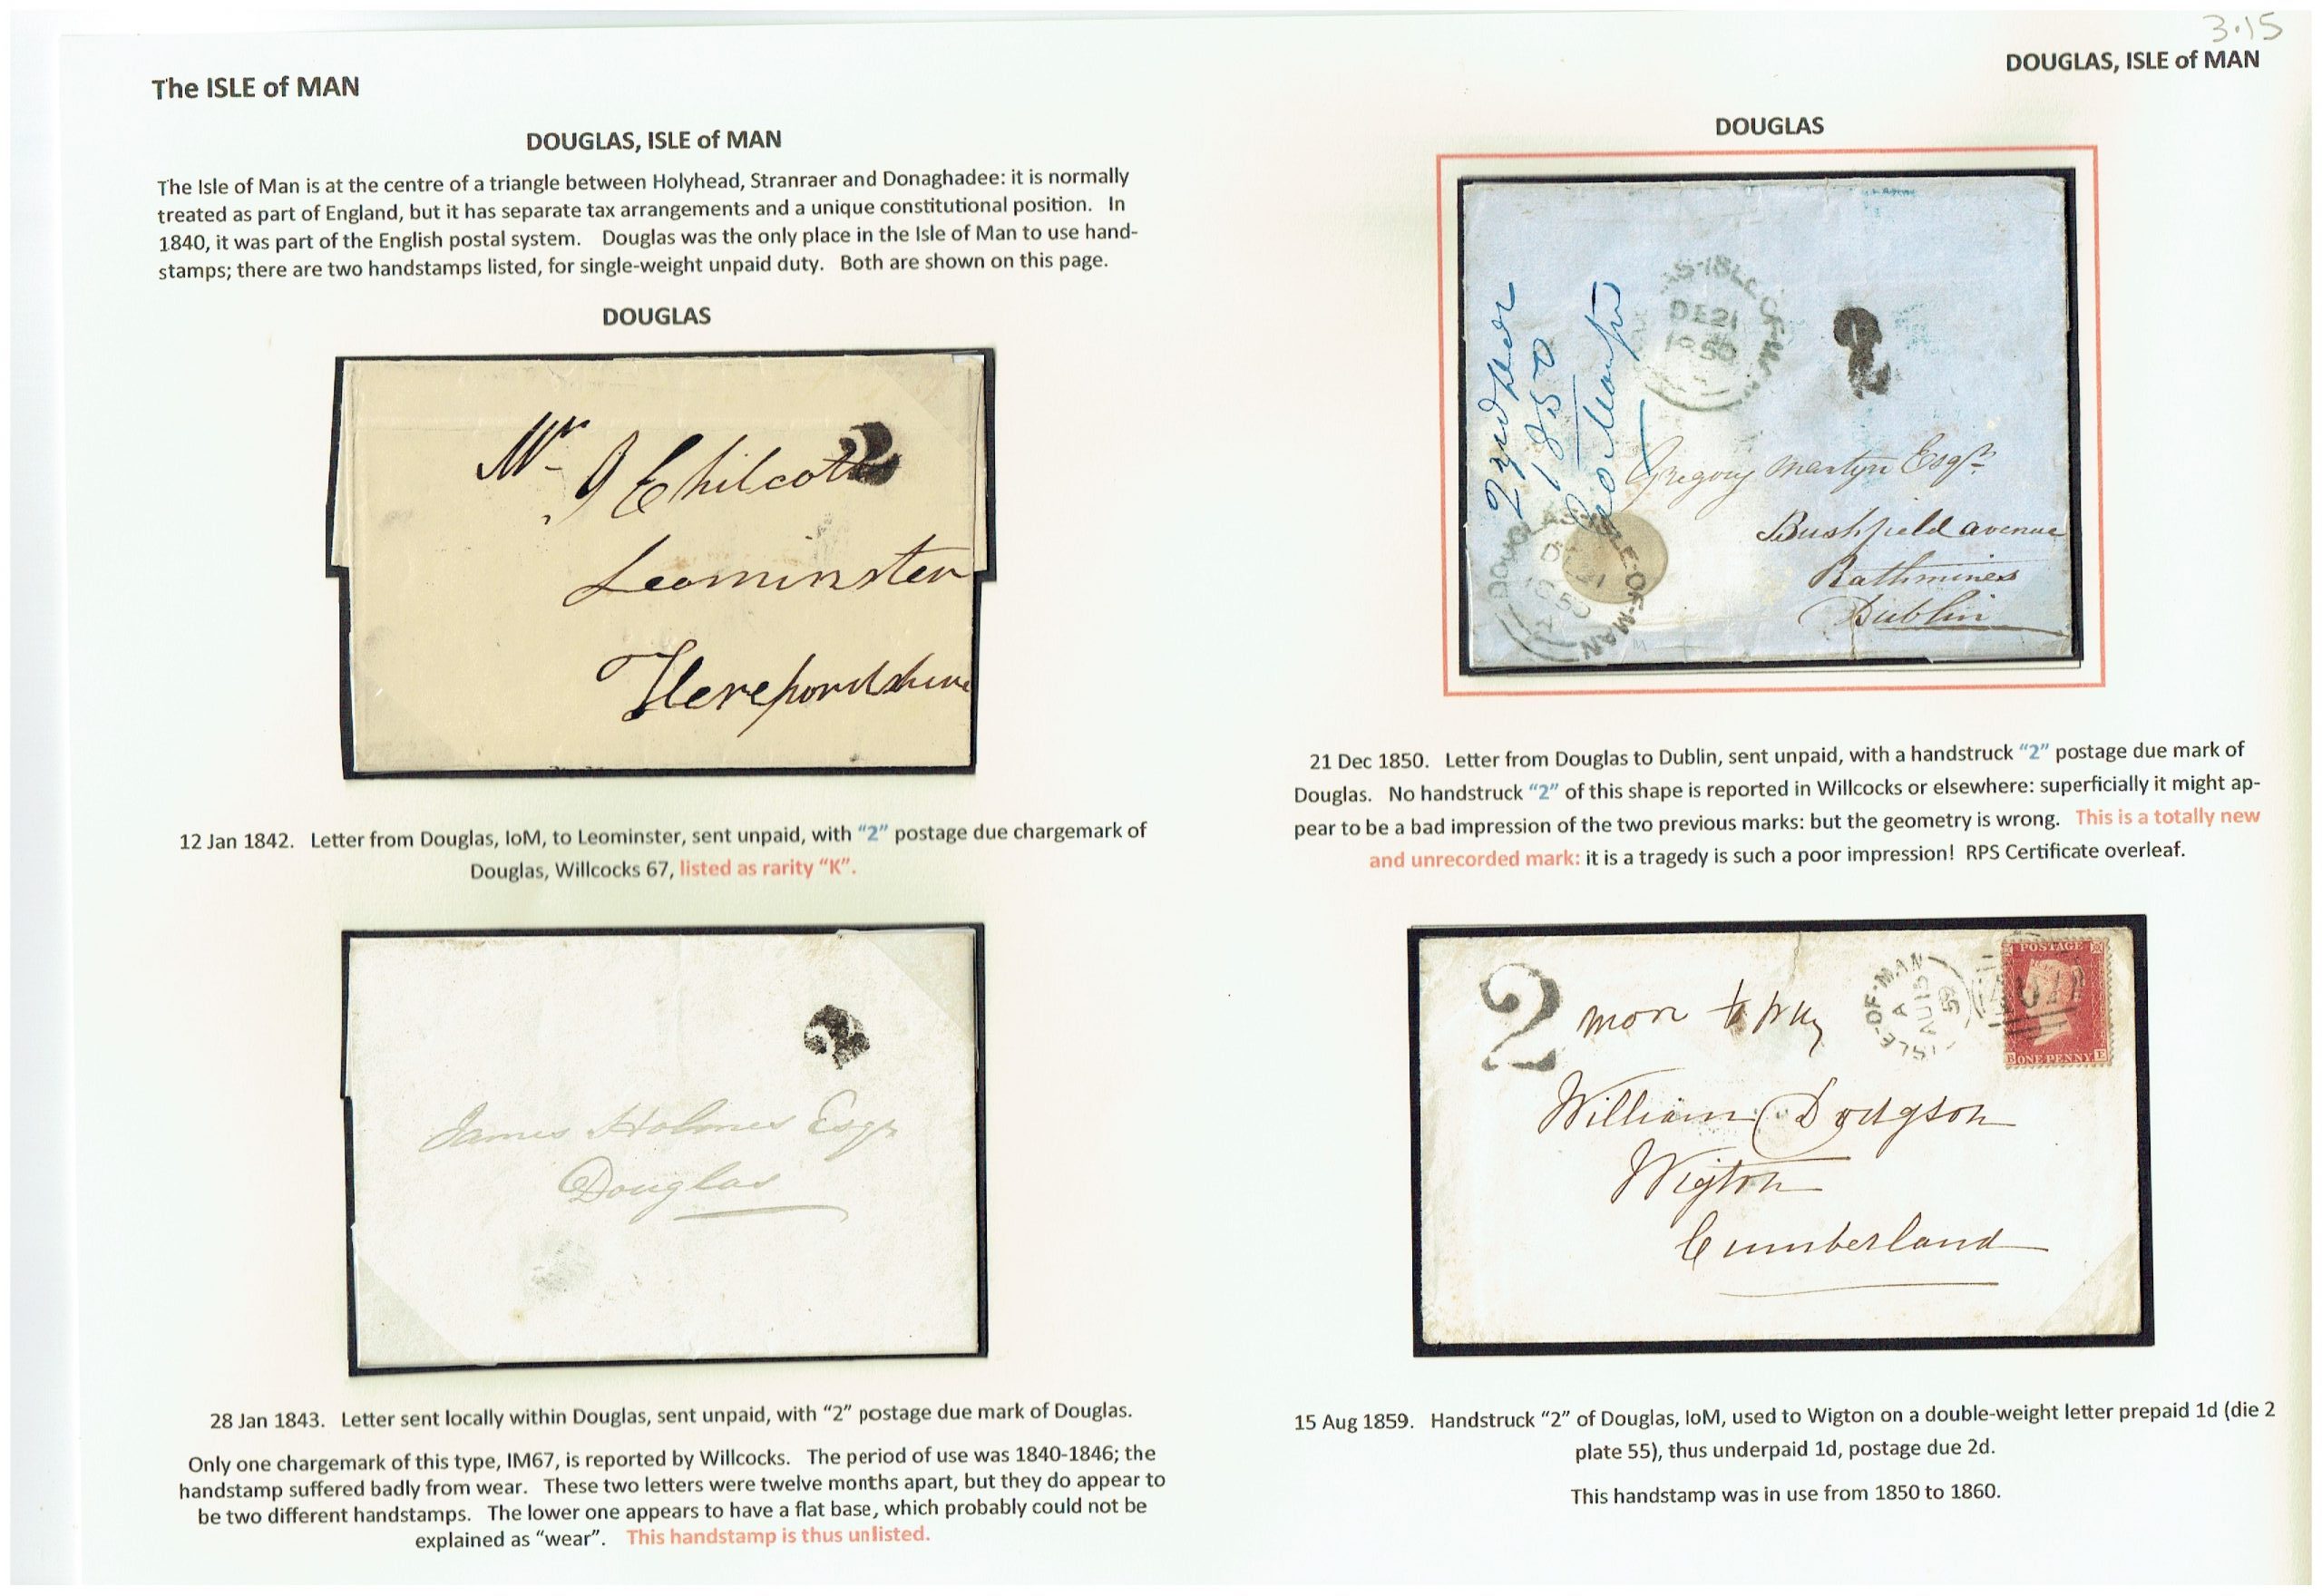 3.15
The ISLE of MAN
DOUGLAS, ISLE of MAN
The Isle of Man is at the centre of a triangle between Holyhead, Stranraer and Donaghadee: it is normally
treated as part of England, but it has separate tax arrangements and a unique constitutional position. In
1840, it was part of the English postal system. Douglas was the only place in the Isle of Man to use hand-
stamps; there are two handstamps listed, for single-weight unpaid duty. Both are shown on this page.
DOUGLAS
2
Mr J Chilcott
Leominster
Herefordshire
12 Jan 1842. Letter from Douglas, IoM, to Leominster, sent unpaid, with “2” postage due chargemark of
Douglas, Willcocks 67, listed as rarity “K”.
2
James Holmes Esqr
Douglas
28 Jan 1843. Letter sent locally within Douglas, sent unpaid, with “2” postage due mark of Douglas.
Only one chargemark of this type, IM67, is reported by Willcocks. The period of use was 1840-1846; the
handstamp suffered badly from wear. These two letters were twelve months apart, but they do appear to
be two different handstamps. The lower one appears to have a flat base, which probably could not be
explained as “wear”. This handstamp is thus unlisted.
DOUGLAS, ISLE of MAN
DOUGLAS
DE21
1850
2
1850
Gregory Martyn Esqr
Bushfield avenue
Rathmines
Dublin
DOUGLAS-ISLE-OF-MAN
21 Dec 1850. Letter from Douglas to Dublin, sent unpaid, with a handstruck “2” postage due mark of
Douglas. No handstruck “2” of this shape is reported in Willcocks or elsewhere: superficially it might ap-
pear to be a bad impression of the two previous marks: but the geometry is wrong. This is a totally new
and unrecorded mark: it is a tragedy is such a poor impression! RPS Certificate overleaf.
2 more to pay
ISLE-OF-MAN
A
AU15
59
POSTAGE
B ONE PENNY E
William Dodgson
Wigton
Cumberland
15 Aug 1859. Handstruck “2” of Douglas, IoM, used to Wigton on a double-weight letter prepaid 1d (die 2
plate 55), thus underpaid 1d, postage due 2d.
This handstamp was in use from 1850 to 1860.